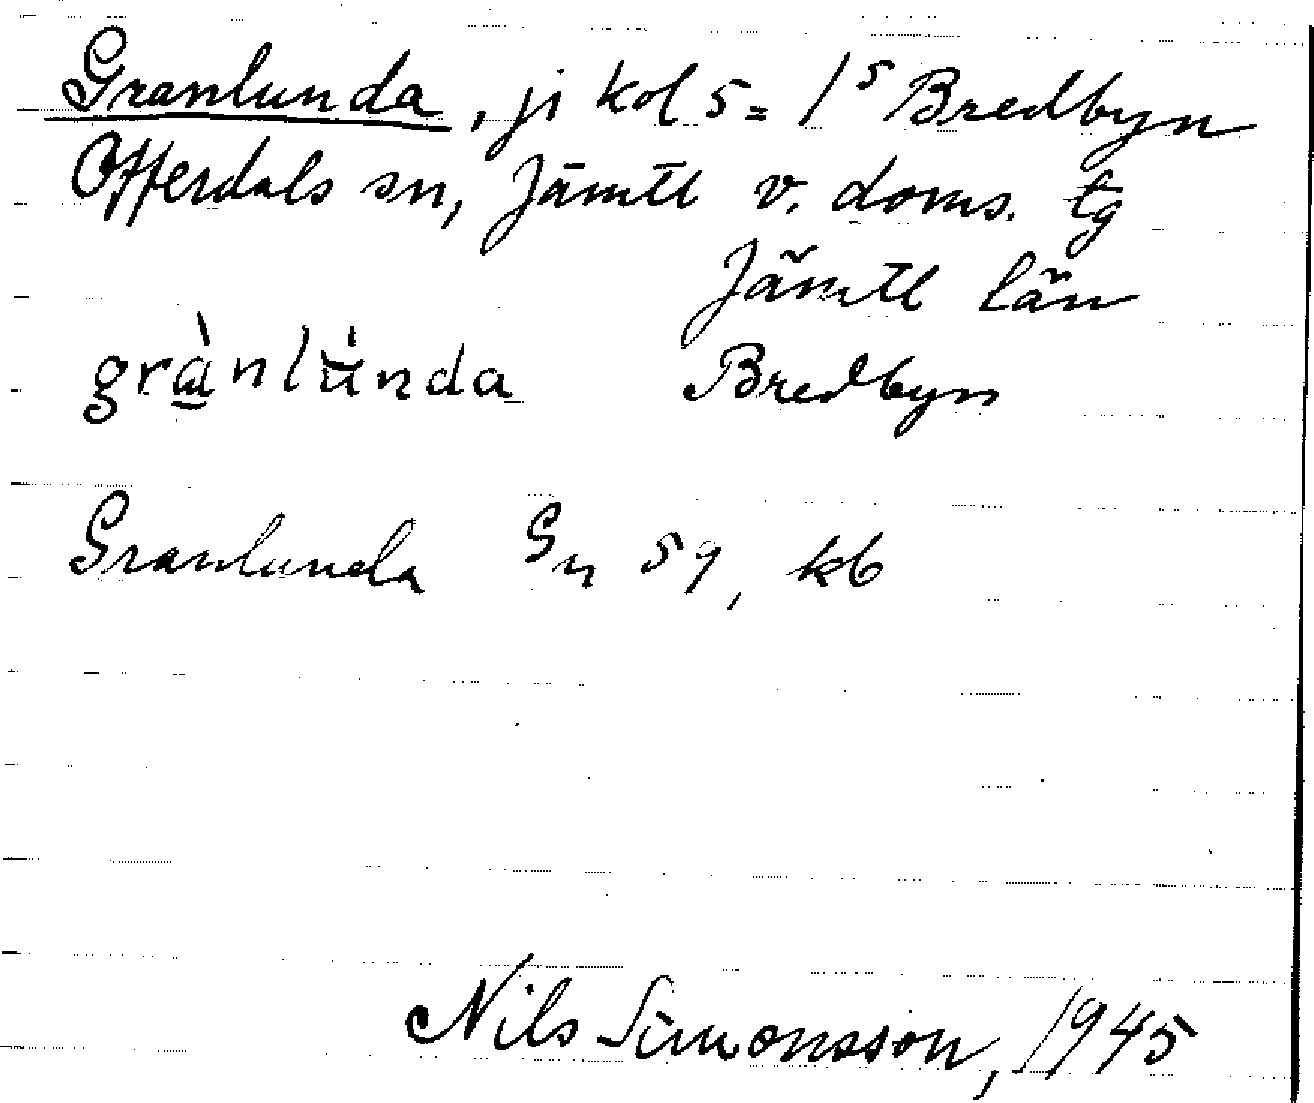 Granlunda, ji kol 5 = 1⁵ Bredbyn
Offerdals sn, Jämtl v. doms. tg
Jämtl län
grànlünda Bredbyn
Granlunda Gn 59, kb
Nils Simonsson, 1945